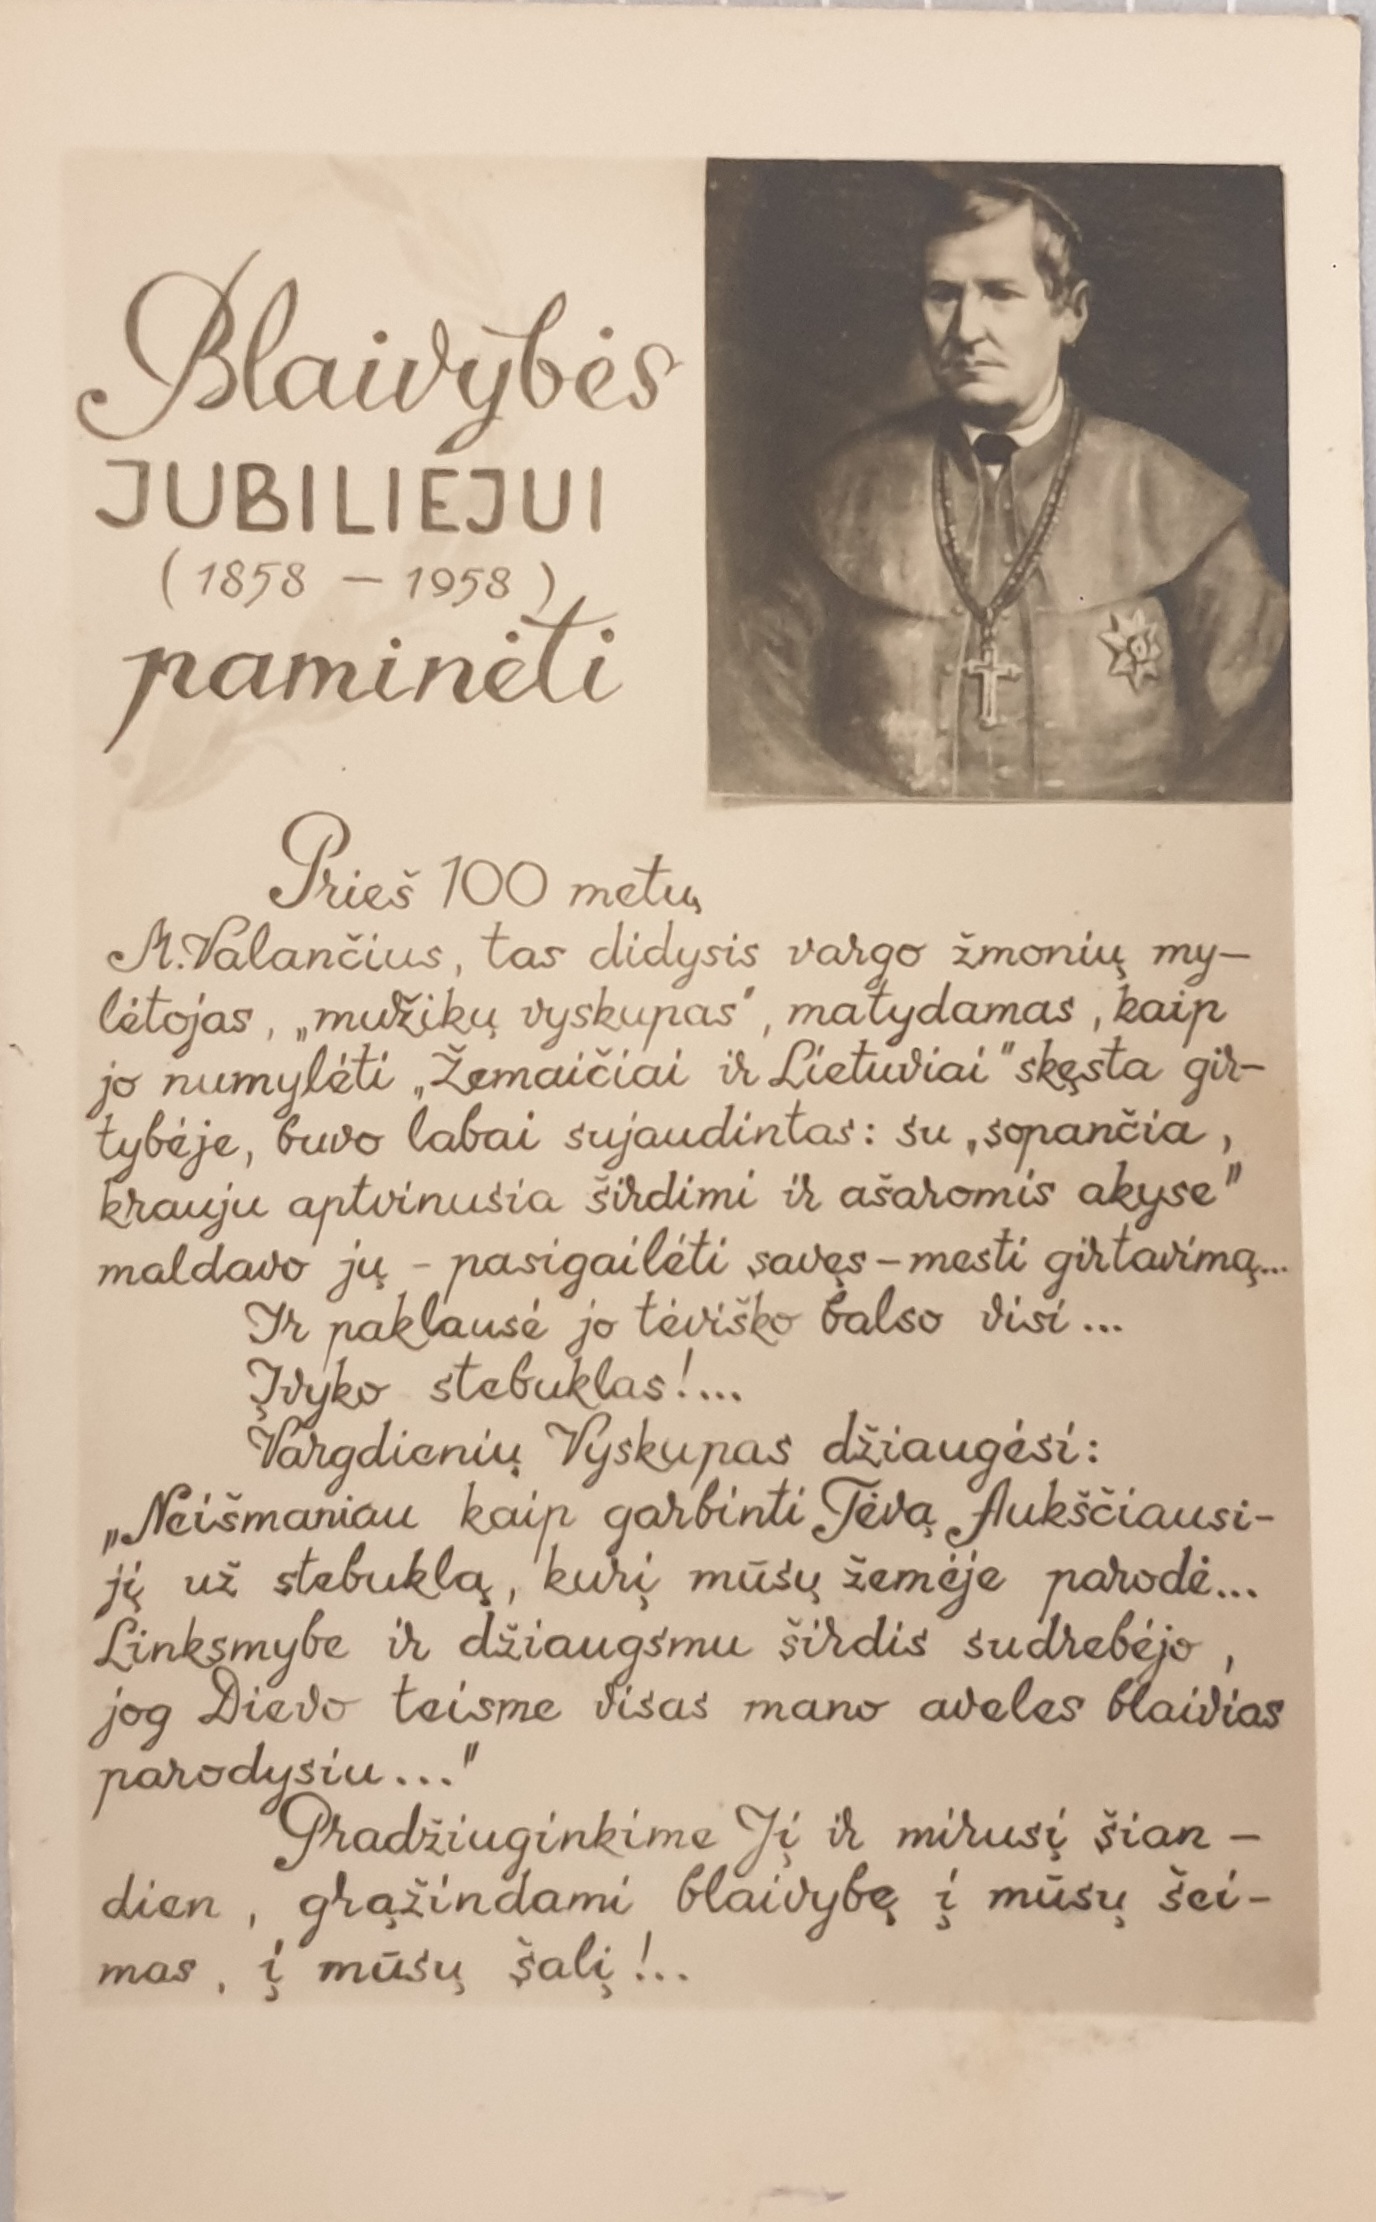 Blaivybės
JUBILIEJUI
(1858 – 1958)
paminėti
Prieš 100 metų
M. Valančius, tas didysis vargo žmonių my-
lėtojas, „mužikų vyskupas", matydamas, kaip
jo numylėti „Žemaičiai ir Lietuviai" skęsta gir-
tybėje, buvo labai sujaudintas: su „sopančia,
krauju aptvinusia širdimi ir ašaromis akyse"
maldavo jų - pasigailėti savęs – mesti girtavimą...
Ir paklausė jo tėviško balso visi...
Įvyko stebuklas!...
Vargdienių Vyskupas džiaugėsi:
„Neišmaniau kaip garbinti Tėvą Aukščiausi-
jį už stebuklą, kurį mūsų žemėje parodė...
Linksmybe ir džiaugsmu širdis sudrebėjo,
jog Dievo teisme visas mano aveles blaivias
parodysiu..."
Pradžiuginkime Jį ir mirusį šian-
dien, grąžindami blaivybę į mūsų šei-
mas, į mūsų šalį!..